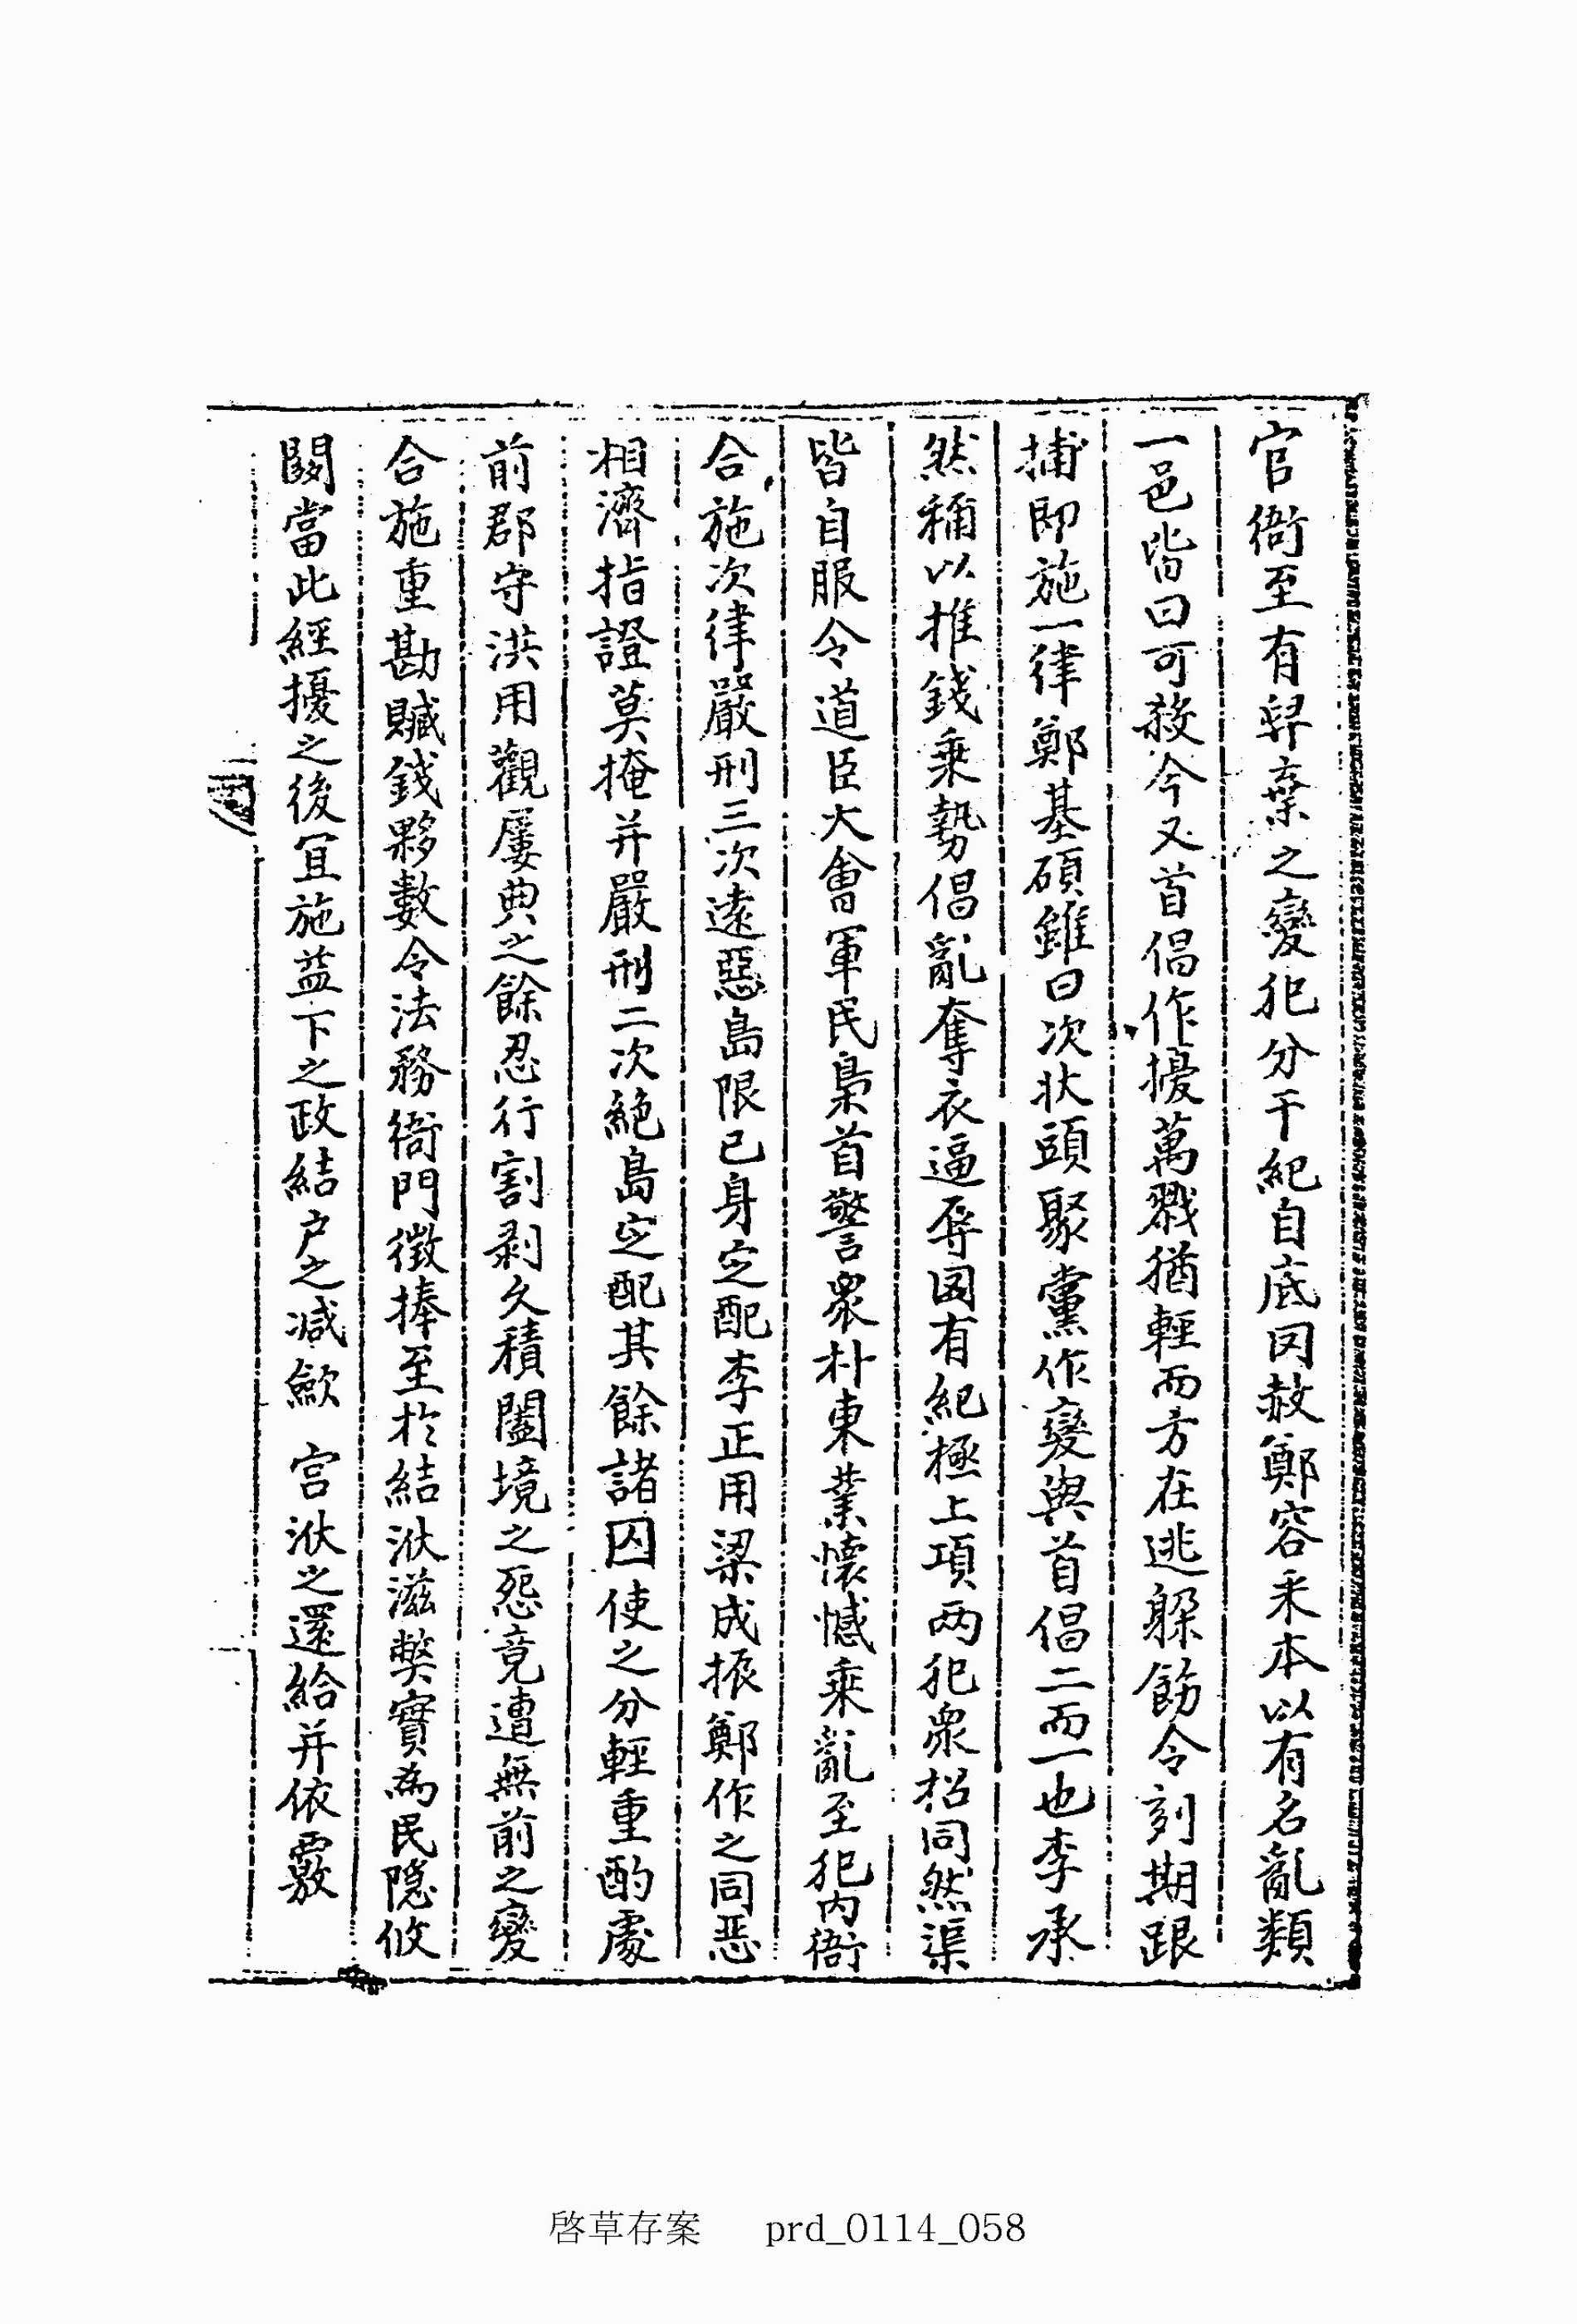 官衙至有舁棄之變犯分干紀自底罔赦鄭容采本以有名亂類
一邑皆曰可殺今又首倡作擾萬戮猶輕而方在逃躱飭令刻期跟
捕卽施一律鄭基碩雖曰次狀頭聚黨作變與首倡二而一也李承
然稱以推錢乘勢倡亂奪衣逼辱罔有紀極上項两犯衆招同然渠
皆自服令道臣大會軍民梟首警衆朴東業懷憾乘亂至犯內衙
合施次律嚴刑三次遠惡島限己身定配李正用梁成振鄭作之同惡
相濟指證莫掩并嚴刑二次絶島定配其餘諸囚使之分輕重酌處
前郡守洪用觀屢典之餘忍行割剥久積闔境之怨竟遭無前之變
合施重勘贓錢夥數令法務衙門徵捧至於結洑滋獘實爲民隱攸
關當此經擾之後宜施益下之政結户之减歛 宮洑之還給并依覈
啓草存案 prd_0114_058